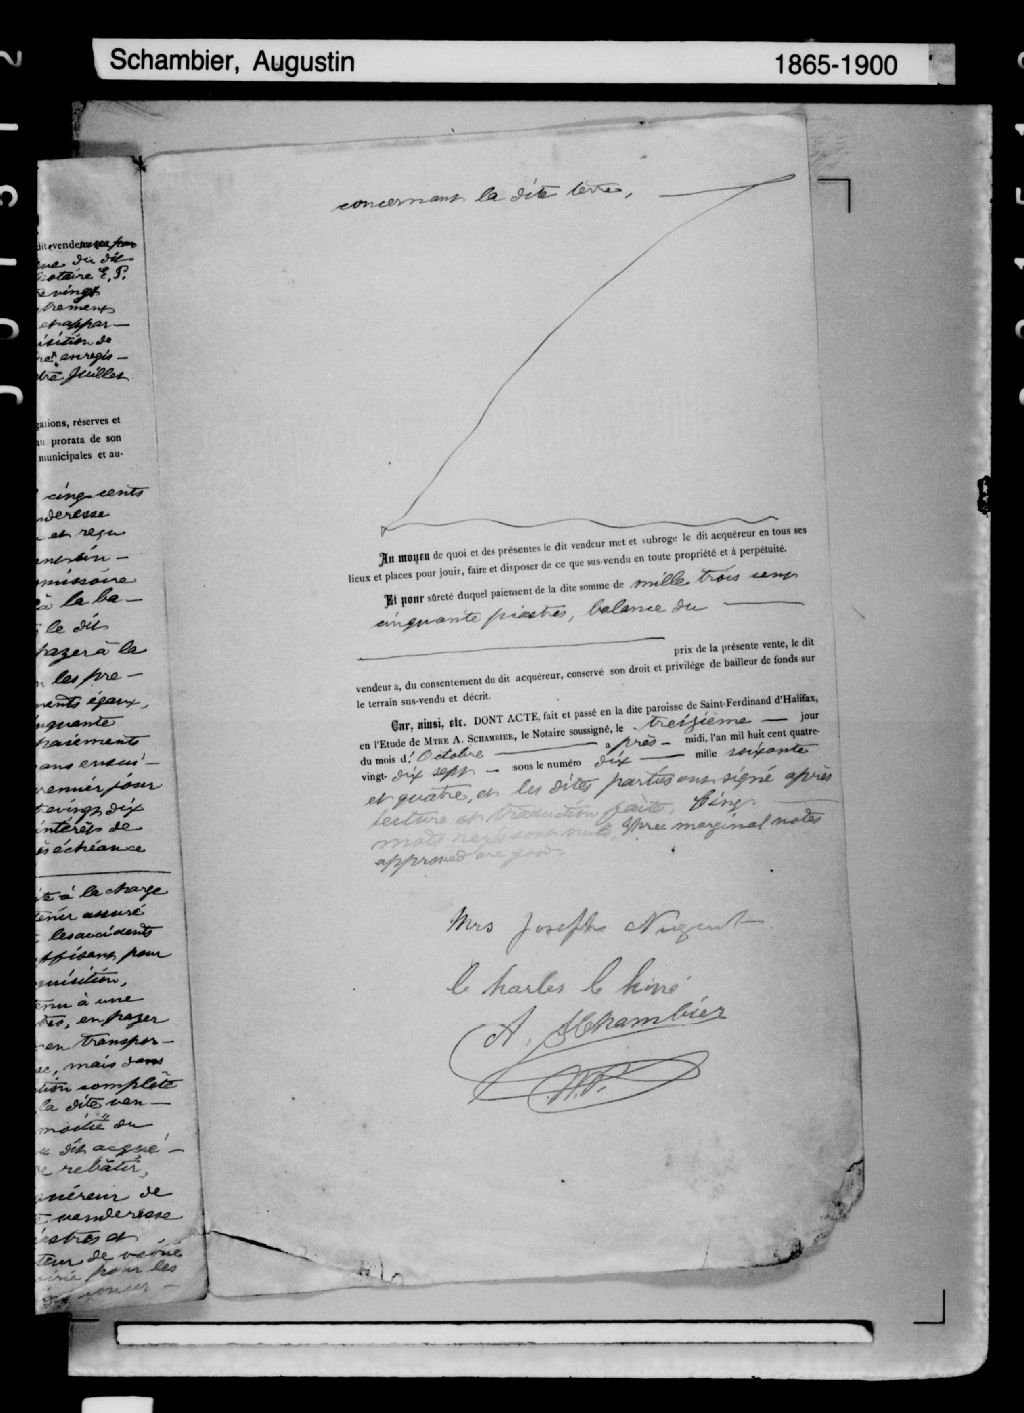 Schambier, Augustin
1865-1900
dite vende
que du dit
notaire E. P.
vingt
trement
et appar—
isition de
enregis—
Juillet
gations, réserves et
au prorata de son
municipales et au-
cinq cents
nderesse
et reçu
missoire
à la ba—
le dit
payer à la
les pre—
ments égaux,
nquante
paiements
ans ensui—
remier jour
vingt dix
intérêt de
échéance
à la charge
tenir assuré
les accidents
suffisant pour
quisition,
tenu à une
en payer
en transpor—
mais dans
tion complète
la dite ven—
moitié du
dit acqué—
rebâtir,
quéreur de
venderesse
iastres et
pour les
concernant la dite terre,
Au moyen de quoi et des présentes le dit vendeur met et subroge le dit acquéreur en tous ses
lieux et places pour jouir, faire et disposer de ce que sus-vendu en toute propriété et à perpétuité.
Et pour sûreté duquel paiement de la dite somme de mille trois cent
cinquante piastres, balance du
prix de la présente vente, le dit
vendeur a, du consentement du dit acquéreur, conservé son droit et privilège de bailleur de fonds sur
le terrain sus-vendu et décrit.
Car, ainsi, etc. DONT ACTE, fait et passé en la dite paroisse de Saint-Ferdinand d'Halifax,
en l'Etude de MTRE A. SCHAMBIER, le Notaire soussigné, le treizième — jour
du mois d'Octobre — après — midi, l'an mil huit cent quatre-
vingt-dix sept — sous le numéro dix — mille soixante
et quatre, et les dites parties ont signé après
lecture et traduction faite, Cinq
mots rayés sont nuls, Three marginal notes
approved are good
Mrs Joseph Nugent
Charles C hiné
A. Schambier
N.P.